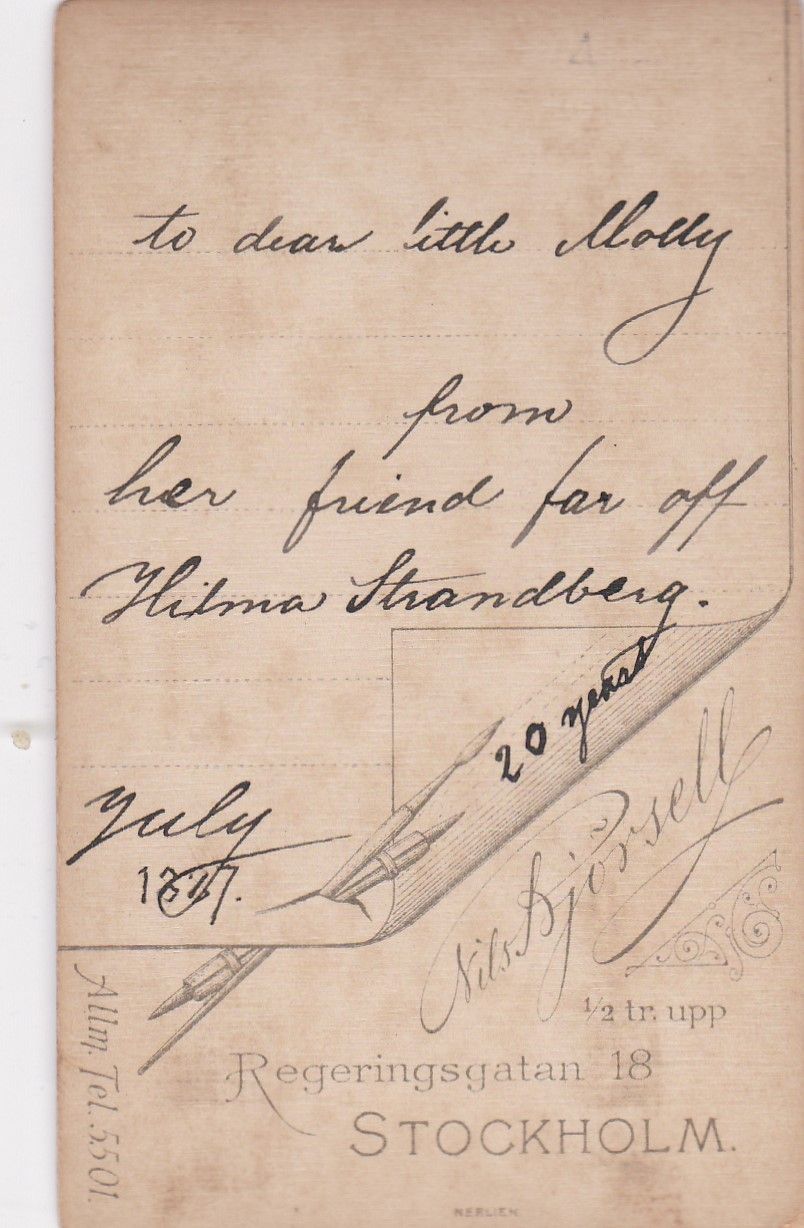 to dear little Molly
from
her friend far off
Hilma Strandberg.
20 years
July
Nils Björsell
1/2 tr. upp
Regeringsgatan 18
STOCKHOLM.
Allm. Tel. 5501.
NERLIEN